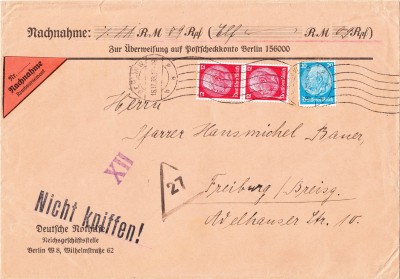 Nachnahme: 11 RM 09 Rpf (Elf RM 09 Rpf)
Zur Überweisung auf Postscheckkonto Berlin 156000
Nachnahme
Deutsches Reich
Herrn
Pfarrer Hansmichel Bauer,
XII
27
Freiburg / Breisg.
Adelhauser Str. 10.
Nicht kniffen!
Deutsche Nothilfe
Reichsgeschäftsstelle
Berlin W 8, Wilhelmstraße 62